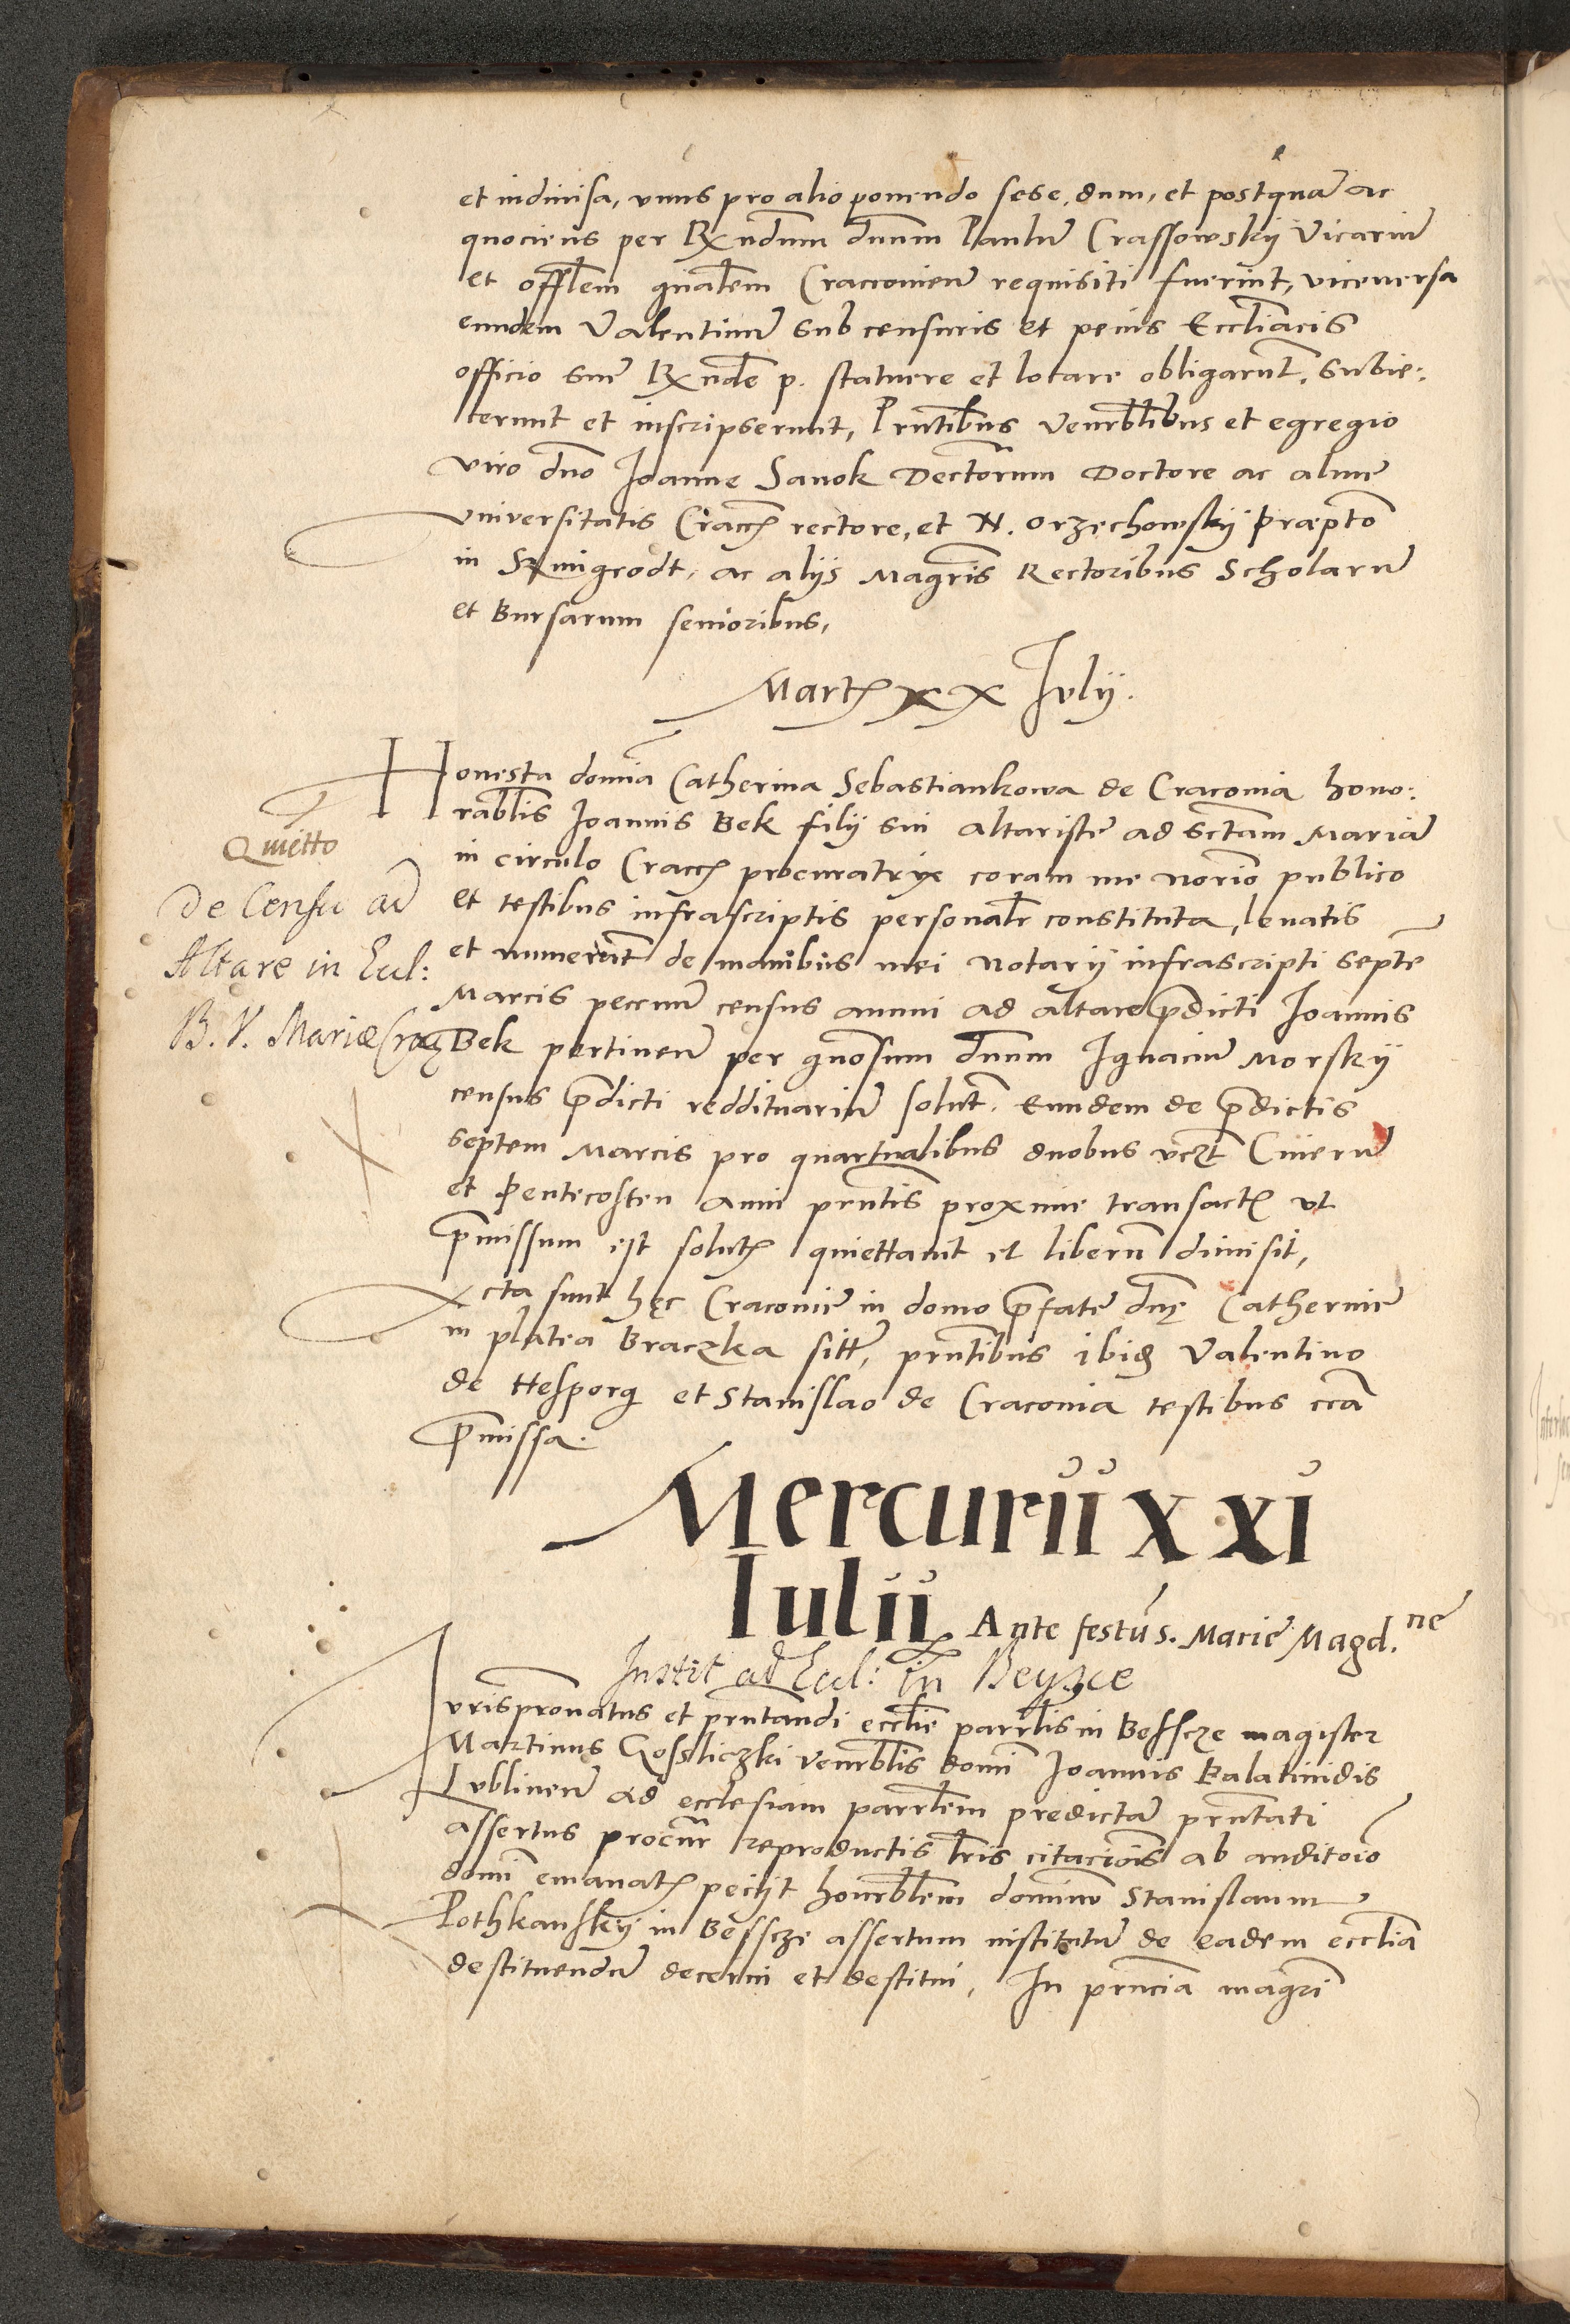 et indivisa, unus pro alio ponendo sese, dum, et postquã ac
quociens per Rx̃ndum dnum Paulũ Crassowsky Vicariũ
et offlem gnalem Cracovieñ requisiti fuerint, viceversa
eundem Valentinũ sub censuris et penis Eccliacis
officio sue Rx̃nde p. statuere et locare obligarũt, subie:
cerunt et inscripserunt, Prntibus venrblibus et egregio
viro dno Joanne Sanok Dectorum Doctore ac alme
universitatis Cracc̃ rectore, et N. Orzechowsky præpto
in Szmigrodt, ac alijs Magris Rectoribus Scholarũ
et Bursarum senioribus,
Marts xx Julij.
Honesta domina Catherina Sebastiankowa de Craconia hono:
rablis Joannis Bek filij sui altariste ad sctam Mariã
in circulo Cracc̃ procuratrix coram me norio publico
et testibus infrascriptis personalr constituta, levatis
et numerat̃ de manibus mei notarij infrascripti septẽ
Marcis pecun̄ census annui ad altare p̃dicti Joannis
Bek pertineñ per gnosum dnum Ignaciũ Morsky
census p̃dicti reddituariũ solut̃. Eundem de p̃dictis
septem Marcis pro quartualibus duobus vczt Cinerũ
et Pentecosten anni prntis proxime transact̃ ut
p̃missum est solut̃ quiettavit et liberũ dimisit,
Acta sunt hęc Craconie in domo p̃fate dnę Catherine
in platea Braczka sitt̃, prntibus ibid̃ Valentino
de Hesporg et Stanislao de Craconia testibus cc̃a
p̃missa.
Quietto
De Censu ad
Altare in Eccl:
B. V. Mariæ Crac
Mercurii XXI
Iulii Ante festũ s. Marie Magd.ne
Instit ad Eccl: in Beysce
Jurispronatus et prntandi ecclie parrlis in Bessze magister
Martinus Gosliczki venrblis domi Joannis Palatinidis
Lublineñ ad ecclesiam parrlem predictã prntati
assertus procur̃ reproductis lris citacionis ab auditoio
domi emanat̃ petijt honrblem dominũ Stanislaum
Pothkansky in Besscze assertum institutũ de eadem ecclia
destituendũ decerni et destitui, In prncia magri